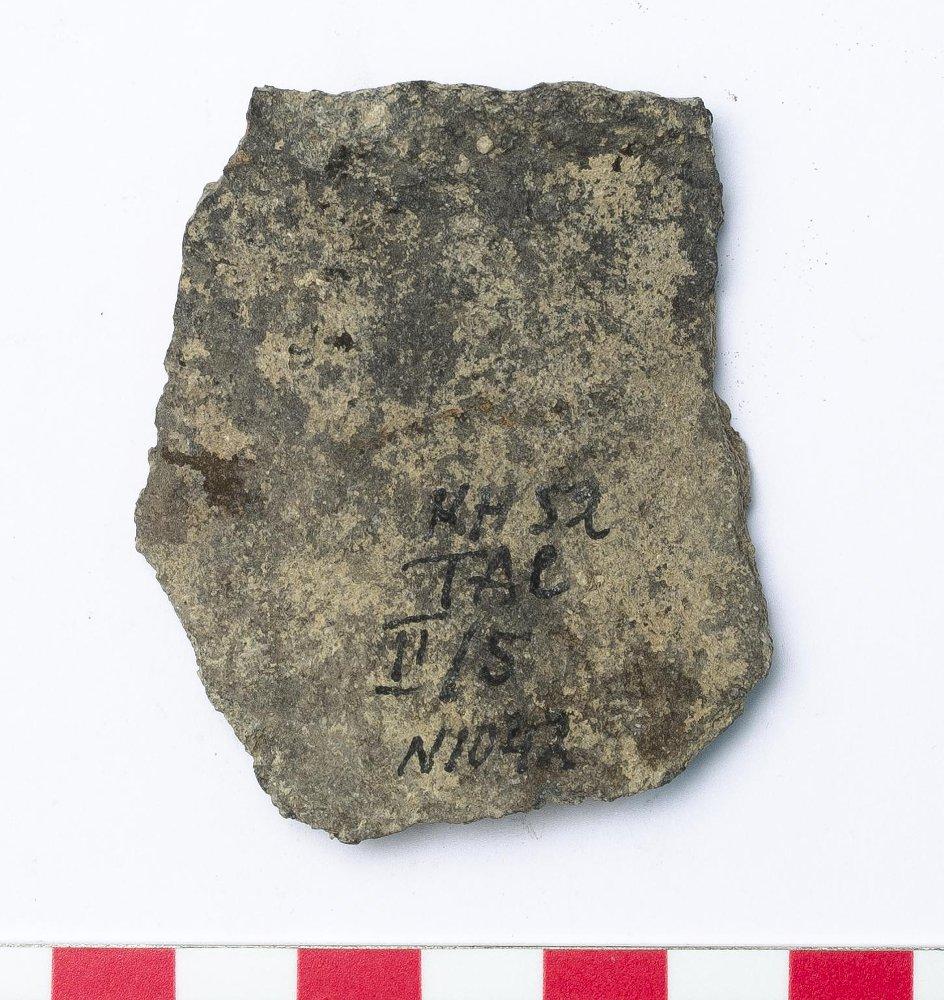 KH 52
TAC
II/5
N1042